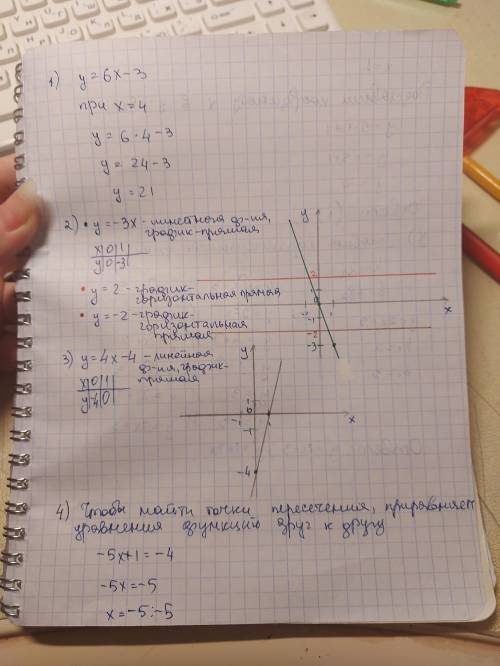 1) y = 6x - 3
при x = 4
y = 6 · 4 - 3
y = 24 - 3
y = 21
2) • y = -3x - линейная ф-ия,
график-прямая
x | 0 | 1 |
y | 0 | -3 |
• y = 2 - график-
горизонтальная прямая
• y = -2 - график-
горизонтальная
прямая
y
2
0
-1
1
-1
-2
-3
x
3) y = 4x - 4 - линейная
ф-ия, график-
прямая
x | 0 | 1 |
y | -4 | 0 |
y
1
0
-1
1
-1
-4
x
4) Чтобы найти точки пересечения, приравняем
уравнения функций друг к другу
-5x+1 = -4
-5x = -5
x = -5 : -5